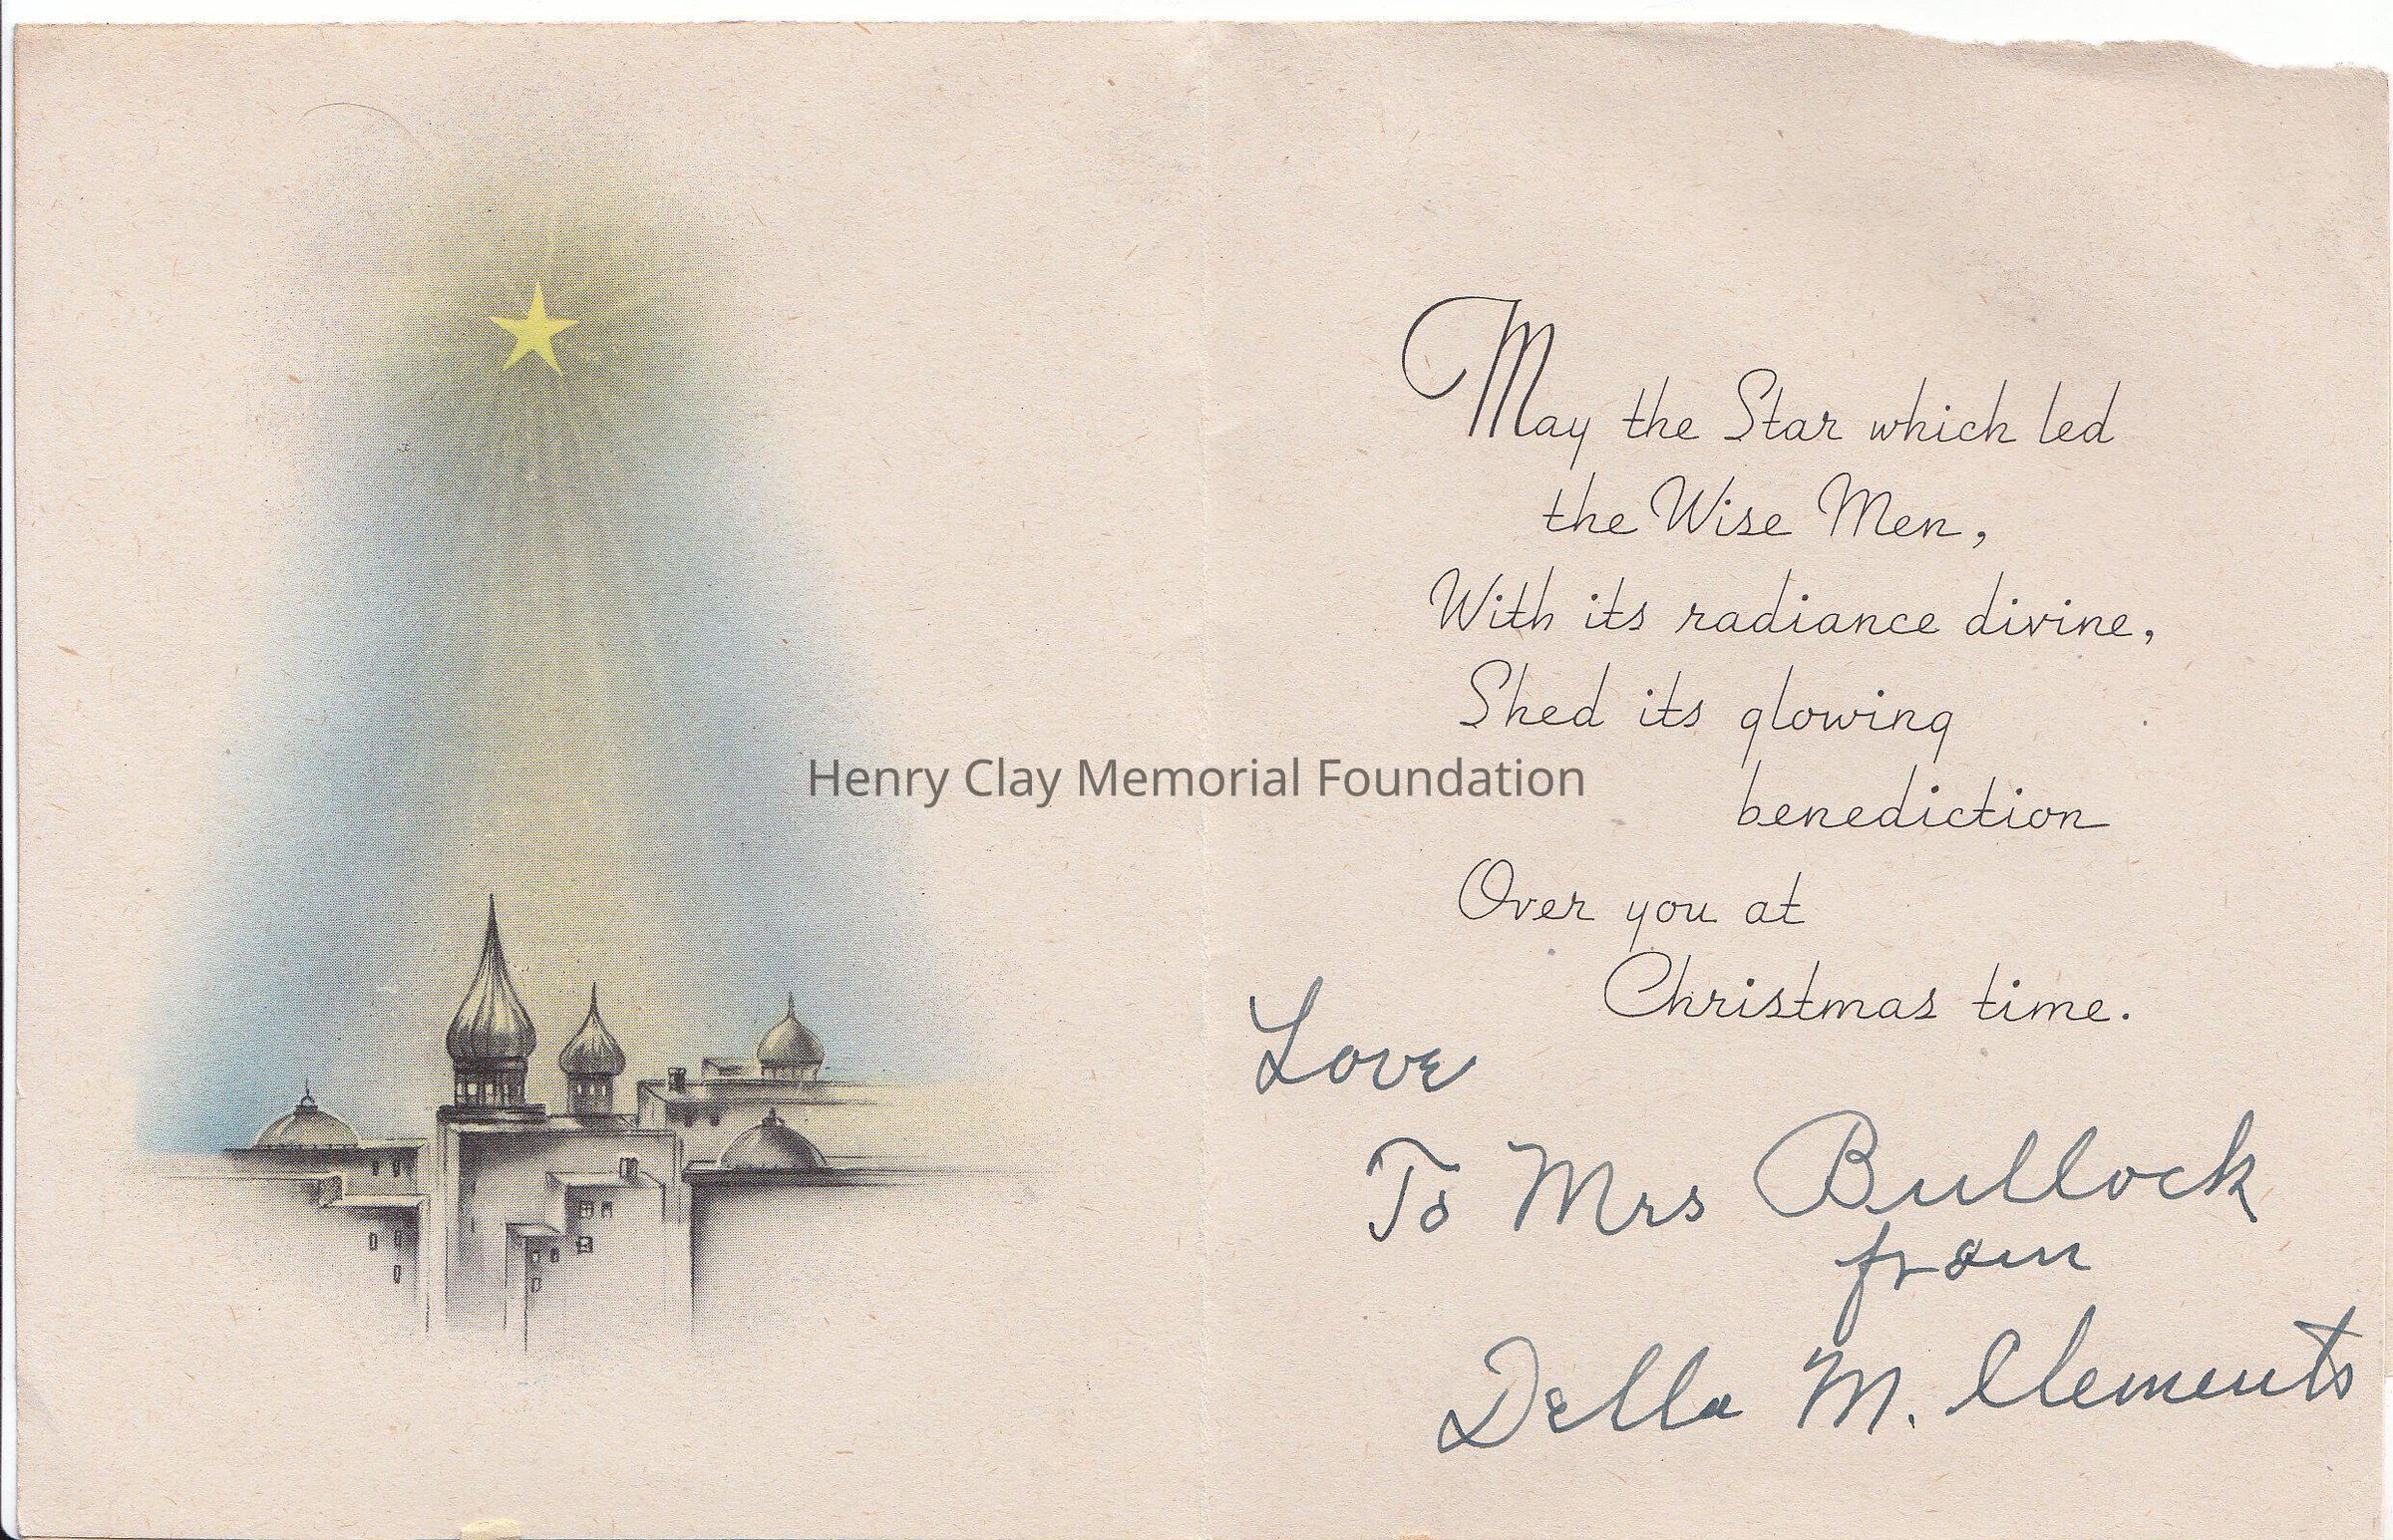 May the Star which led
the Wise Men,
With its radiance divine,
Shed its glowing
Henry Clay Memorial Foundation
benediction
Over you at
Christmas time.
Love
To Mrs Bullock
from
Della M. Clements